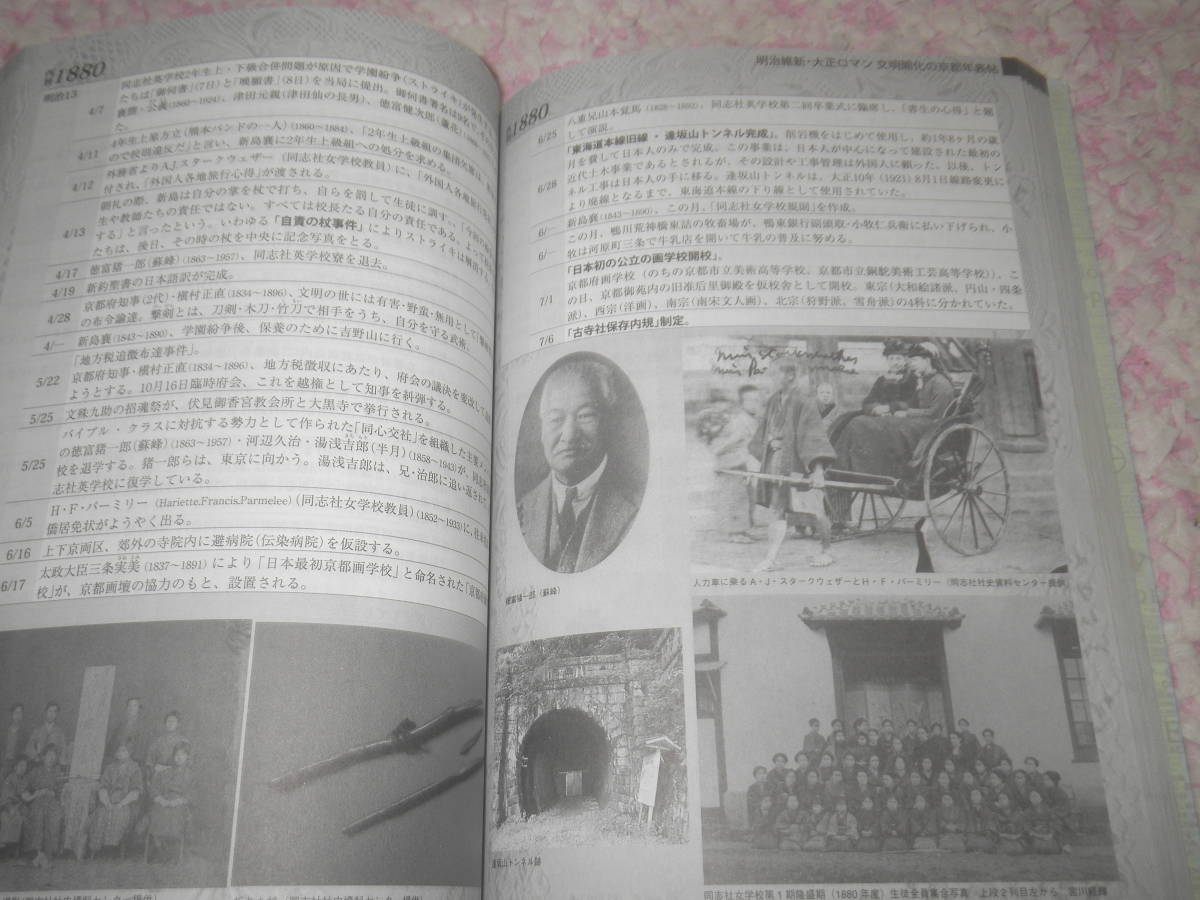 西暦1880
明治13
同志社英学校2年生上・下級合併問題が原因で学園紛争(ストライキ)が
4/7 たちは「御伺書」(7日)と「嘆願書」(8日)を当局に提出。御伺書署名は9名で、
襄際・公義(1860~1924)、津田元親(津田仙の長男)、徳富健次郎(蘆花)
た。
4年生上業方立(熊本バンドの一人)(1860~1884)、「2年生上級組の集団欠席は、
4/11 ので校則違反だ」と言い、新島襄に2年生上級組への処分を求める。
外務省よりA.J.スタークウェザー(同志社女学校教員)に、「外国人
4/12 付され、「外国人各地旅行心得」が渡される。
朝礼の際、新島は自分の掌を杖で打ち、自らを罰して生徒に諭す。「今回の
生や教師たちの責任ではない。すべては校長たる自分の責任である。よって
4/13 する」と言ったという。いわゆる「自責の杖事件」によりストライキは解消する。
たちは、後日、その時の杖を中央に記念写真をとる。
4/17 徳富猪一郎(蘇峰)(1863~1957)、同志社英学校寮を退去。
4/19 新約聖書の日本語訳が完成。
京都府知事(2代)・槇村正直(1834~1896)、文明の世には有害・野蛮・無用として「撃剣
4/28 の布令論達。撃剣とは、刀剣・木刀・竹刀で相手をうち、自分を守る武術。
4/― 新島襄(1843~1890)、学園紛争後、保養のために吉野山に行く。
「地方税追徴布達事件」。
5/22 京都府知事・槇村正直(1834~1896)、地方税徴収にあたり、府会の議決を変改して
ようとする。10月16日臨時府会、これを越権として知事を糾弾する。
5/25 文殊九助の招魂祭が、伏見御香宮教会所と大黒寺で挙行される。
バイブル・クラスに対抗する勢力として作られた「同心交社」を組織した主要メ
5/25 の徳富猪一郎(蘇峰)(1863~1957)・河辺久治・湯浅吉郎(半月)(1858~1943)が、同志社
校を退学する。猪一郎らは、東京に向かう。湯浅吉郎は、兄・治郎に追い返されて
志社英学校に復学している。
6/5 H・F・パーミリー(Hariette.Francis.Parmelee)(同志社女学校教員)(1852~1933)に、
僑居免状がようやく出る。
6/16 上下京両区、郊外の寺院内に避病院(伝染病院)を仮設する。
6/17 太政大臣三条実美(1837~1891)により「日本最初京都画学校」と命名された「京都府
校」が、京都画壇の協力のもと、設置される。
明治維新・大正ロマン 文明開化の京都年表帖
1880
6/25 八重兄山本覚馬(1828~1892)、同志社英学校第二回卒業式に臨席し、「書生の心得」と題
して演説。
「東海道本線旧線・逢坂山トンネル完成」。削岩機をはじめて使用し、約1年8ヶ月の歳
月を費して日本人のみで完成。この事業は、日本人が中心になって建設された最初の
6/28 近代土木事業であるとされるが、その設計や工事管理は外国人に頼った。以後、トン
ネル工事は日本人の手に移る。逢坂山トンネルは、大正10年(1921)8月1日線路変更に
より廃線となるまで、東海道本線の下り線として使用されていた。
6/― 新島襄(1843~1890)、この月、「同志社女学校規則」を作成。
6/― この月、鴨川荒神橋東詰の牧畜場が、鴨東銀行頭取・小牧仁兵衛に払い下げられ、小
牧は河原町三条で牛乳店を開いて牛乳の普及に努める。
「日本初の公立の画学校開校」。
7/1 京都府画学校(のちの京都市立美術高等学校、京都市立銅駝美術工芸高等学校)、こ
の日、京都御苑内の旧准后里御殿を仮校舎として開校。東宗(大和絵諸派、円山・四条
派)、西宗(洋画)、南宗(南宋文人画)、北宗(狩野派、雪舟派)の4科に分かれていた。
7/6 「古寺社保存内規」制定。
徳富猪一郎(蘇峰)
人力車に乗るA・J・スタークウェザーとH・F・パーミリー(同志社社史資料センター提供)
逢坂山トンネル跡
同志社女学校第1期隆盛期(1880年度)生徒全員集合写真 上段2列目左から、宮川経輝